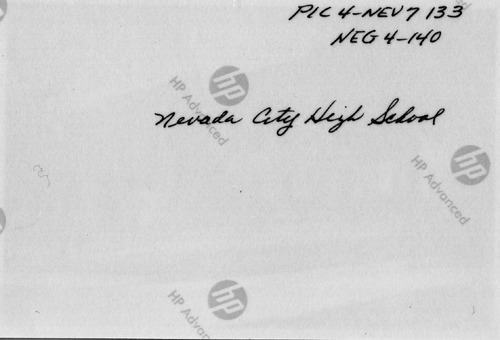 PIC 4-NEV 7 133
NEG 4-140
Nevada City High School
hp
HP Advanced
hp
HP Advanced
hp
HP Advanced